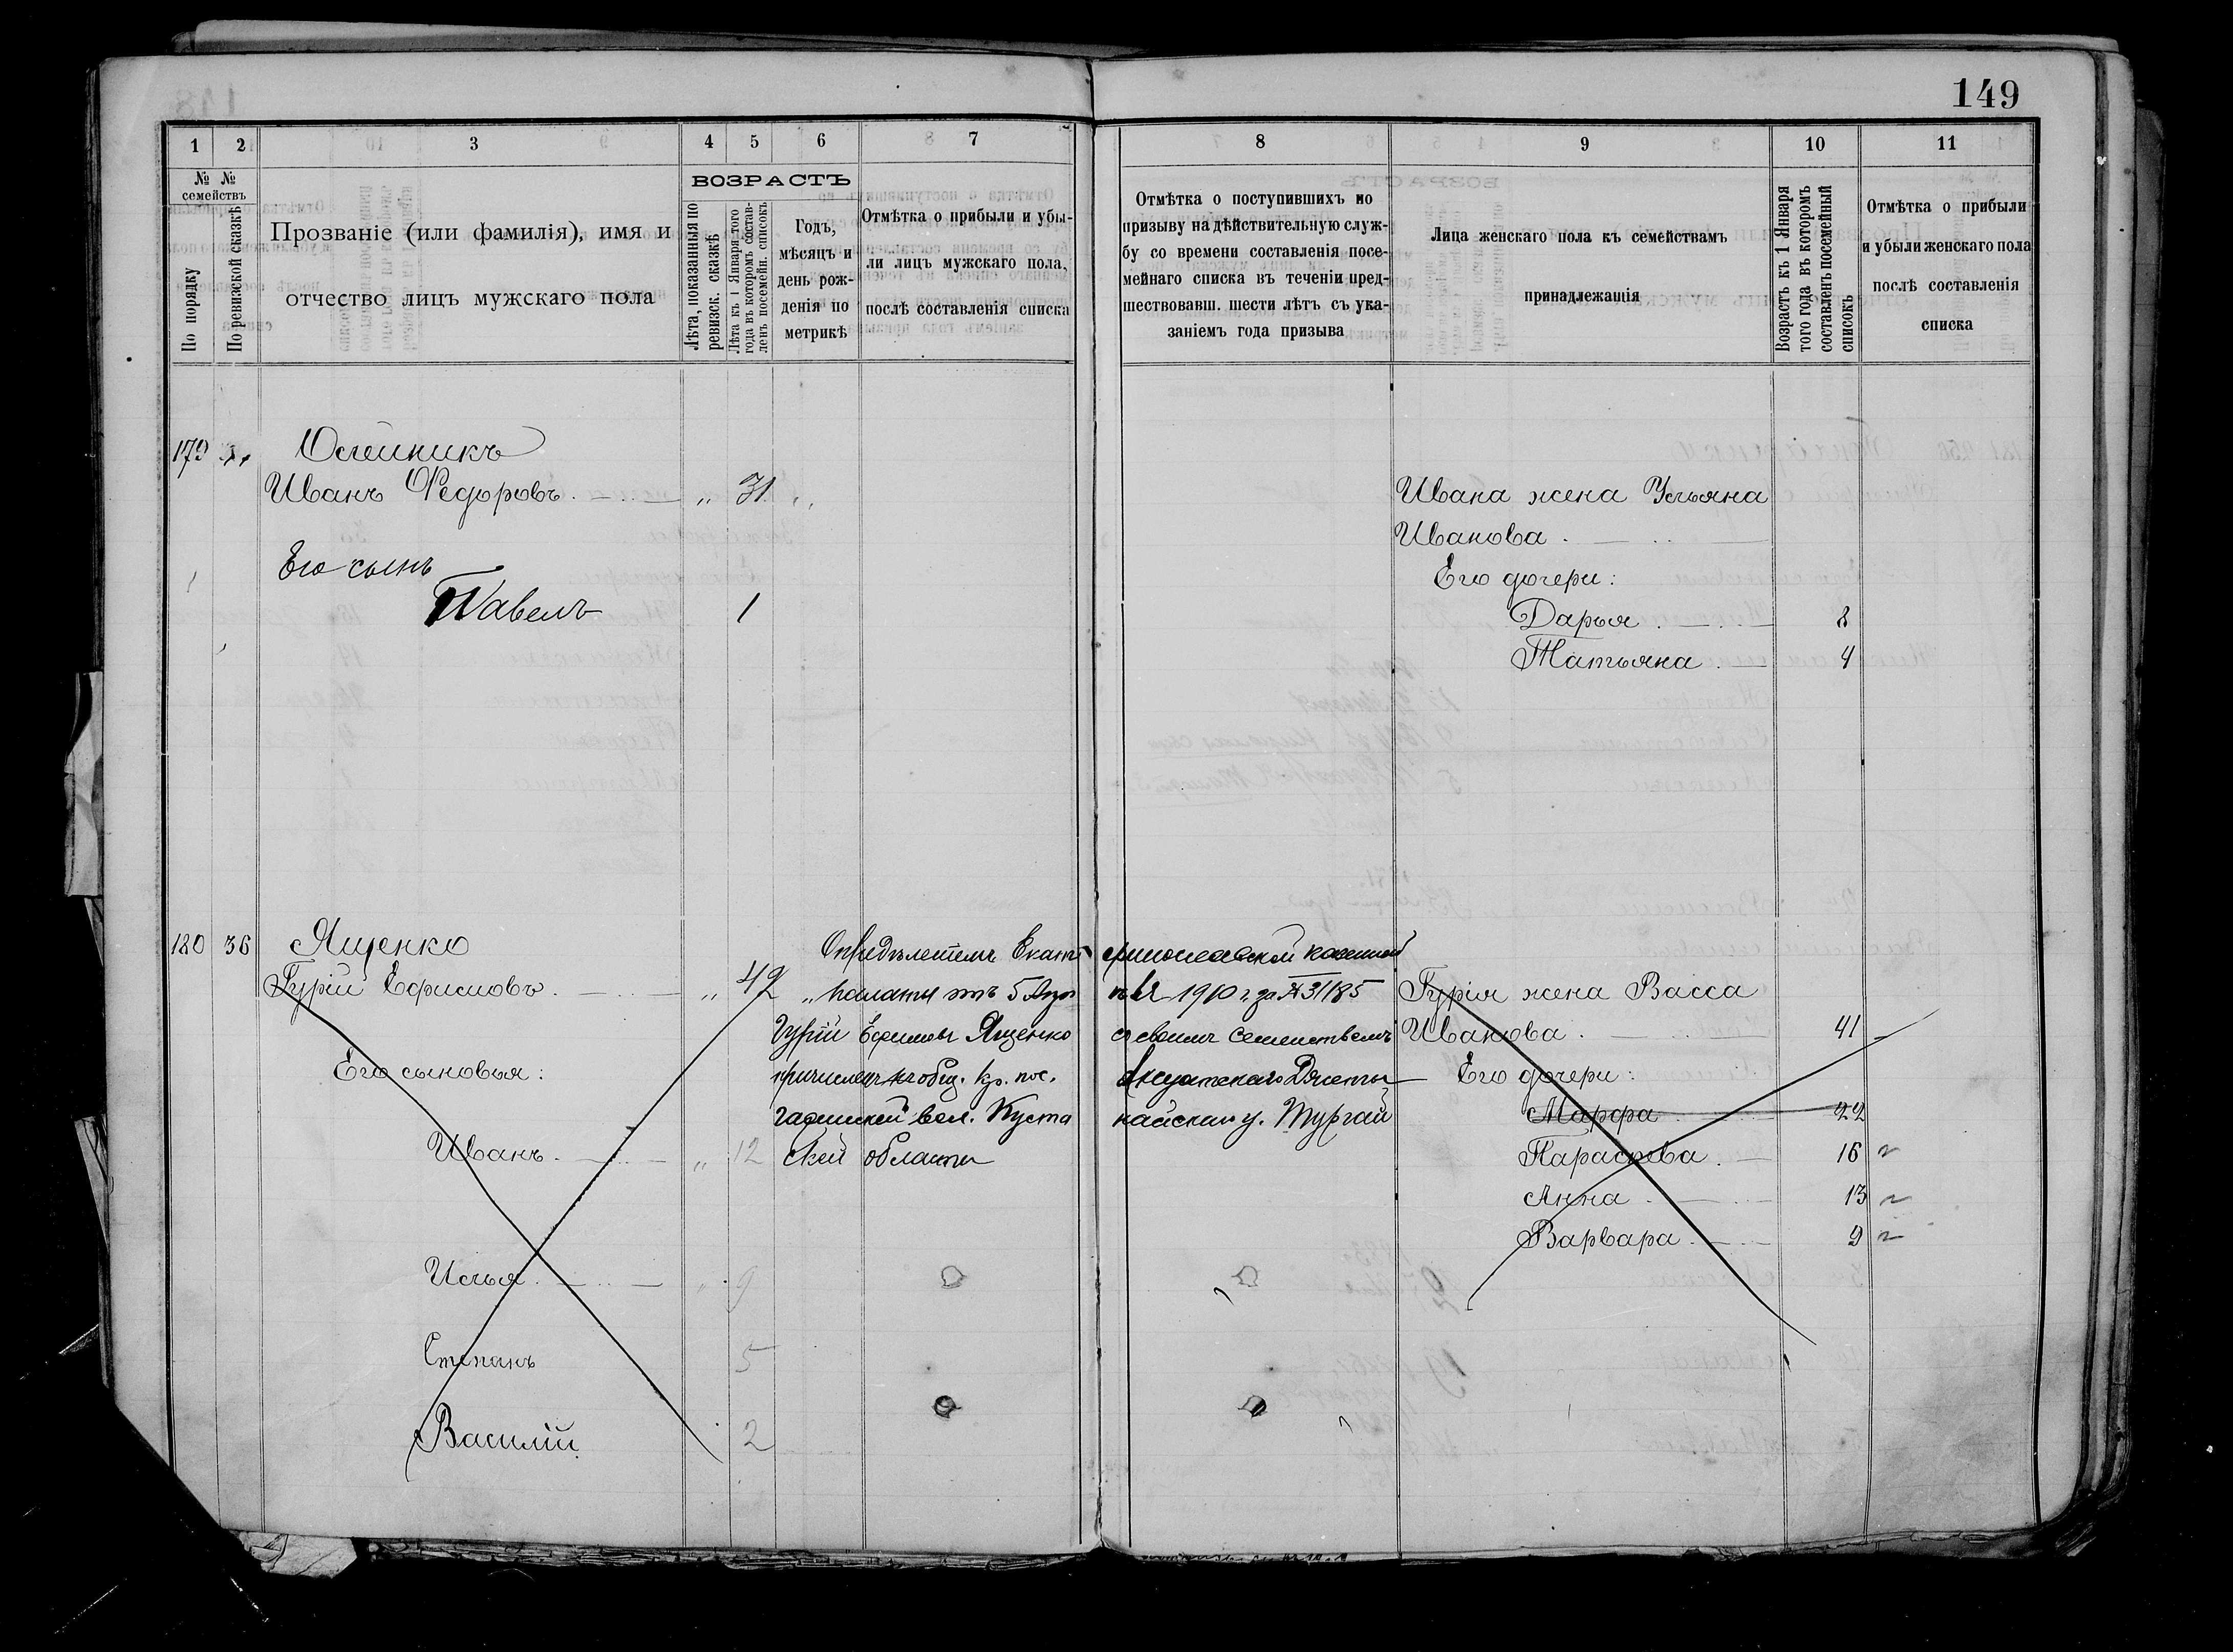 149
1 2 3 4 5 6 7
№ №
семействъ
По порядку
По ревизской сказкѣ
Прозваніе (или фамилія), имя и
отчество лицъ мужскаго пола
ВОЗРАСТЪ
Лѣта, показанныя по
ревизск. сказкѣ
Лѣта къ 1 Января того
года въ которомъ состав-
ленъ посемейн. списокъ
Годъ,
мѣсяцъ и
день рож-
денія по
метрикѣ
Отмѣтка о прибыли и убы-
ли лицъ мужскаго пола,
послѣ составленія списка
8 9 10 11
Отмѣтка о поступившихъ по
призыву на дѣйствительную служ-
бу со времени составленія посе-
мейнаго списка въ теченіи пред-
шествовавш. шести лѣтъ съ ука-
заніемъ года призыва
Лица женскаго пола къ семействамъ
принадлежащія
Возрастъ къ 1 Января
того года въ которомъ
составленъ посемейный
списокъ
Отмѣтка о прибыли
и убыли женскаго пола
послѣ составленія
списка
179 Олейникъ
Иванъ Федоровъ. „ 31
Его сынъ
Павелъ 1
Ивана жена Ульяна
Иванова.
Его дочери:
Дарья 8
Татьяна 4
180 36 Ященко
Гурій Ефимовъ. „ 42
Его сыновья:
Иванъ. „ 12
Илья. „ 9
Степанъ 5
Василій. 2
Опредѣленіемъ Екатеринославской казенной
палаты отъ 5 1910 г. за № 31185
Гурій Ефимовъ Ященко съ своимъ семействомъ
причисленъ къ общ. кр. пос.
вол. Кустанайскаго у. Тургай
ской области
Гурія жена Васса
Иванова. 41
Его дочери:
Марфа 22
Параскева. 16
Анна 13
Варвара 9